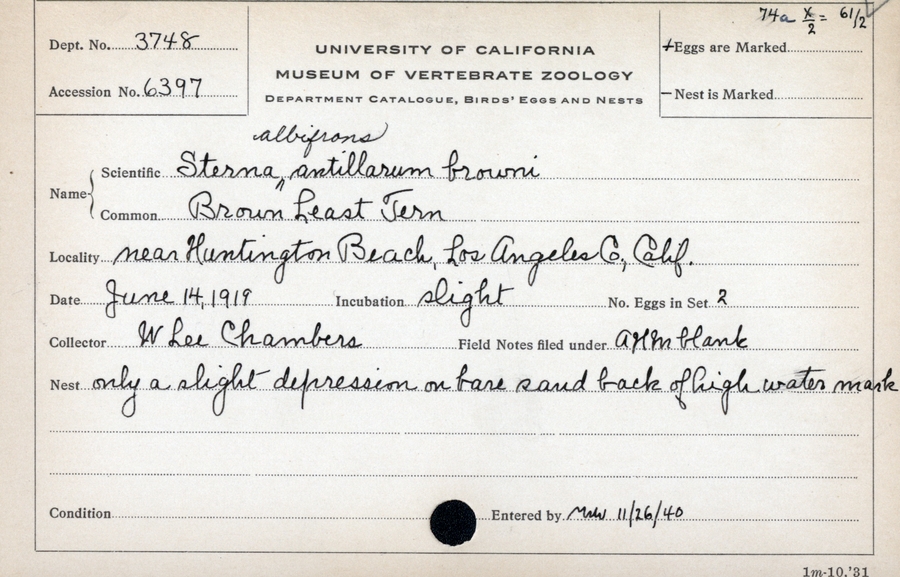 74a x/2 = 61/2
Dept. No. 3748
UNIVERSITY OF CALIFORNIA
+Eggs are Marked
MUSEUM OF VERTEBRATE ZOOLOGY
Accession No. 6397
DEPARTMENT CATALOGUE, BIRDS' EGGS AND NESTS
—Nest is Marked
albifrons
Name { Scientific Sterna ^ antillarum browni
Common Brown Least Tern
Locality near Huntington Beach, Los Angeles Co, Calif.
Date June 14, 1919 Incubation slight No. Eggs in Set 2
Collector W Lee Chambers Field Notes filed under AHM blank
Nest only a slight depression on bare sand back of high water mark
Condition Entered by 11/26/40
1m-10,'31